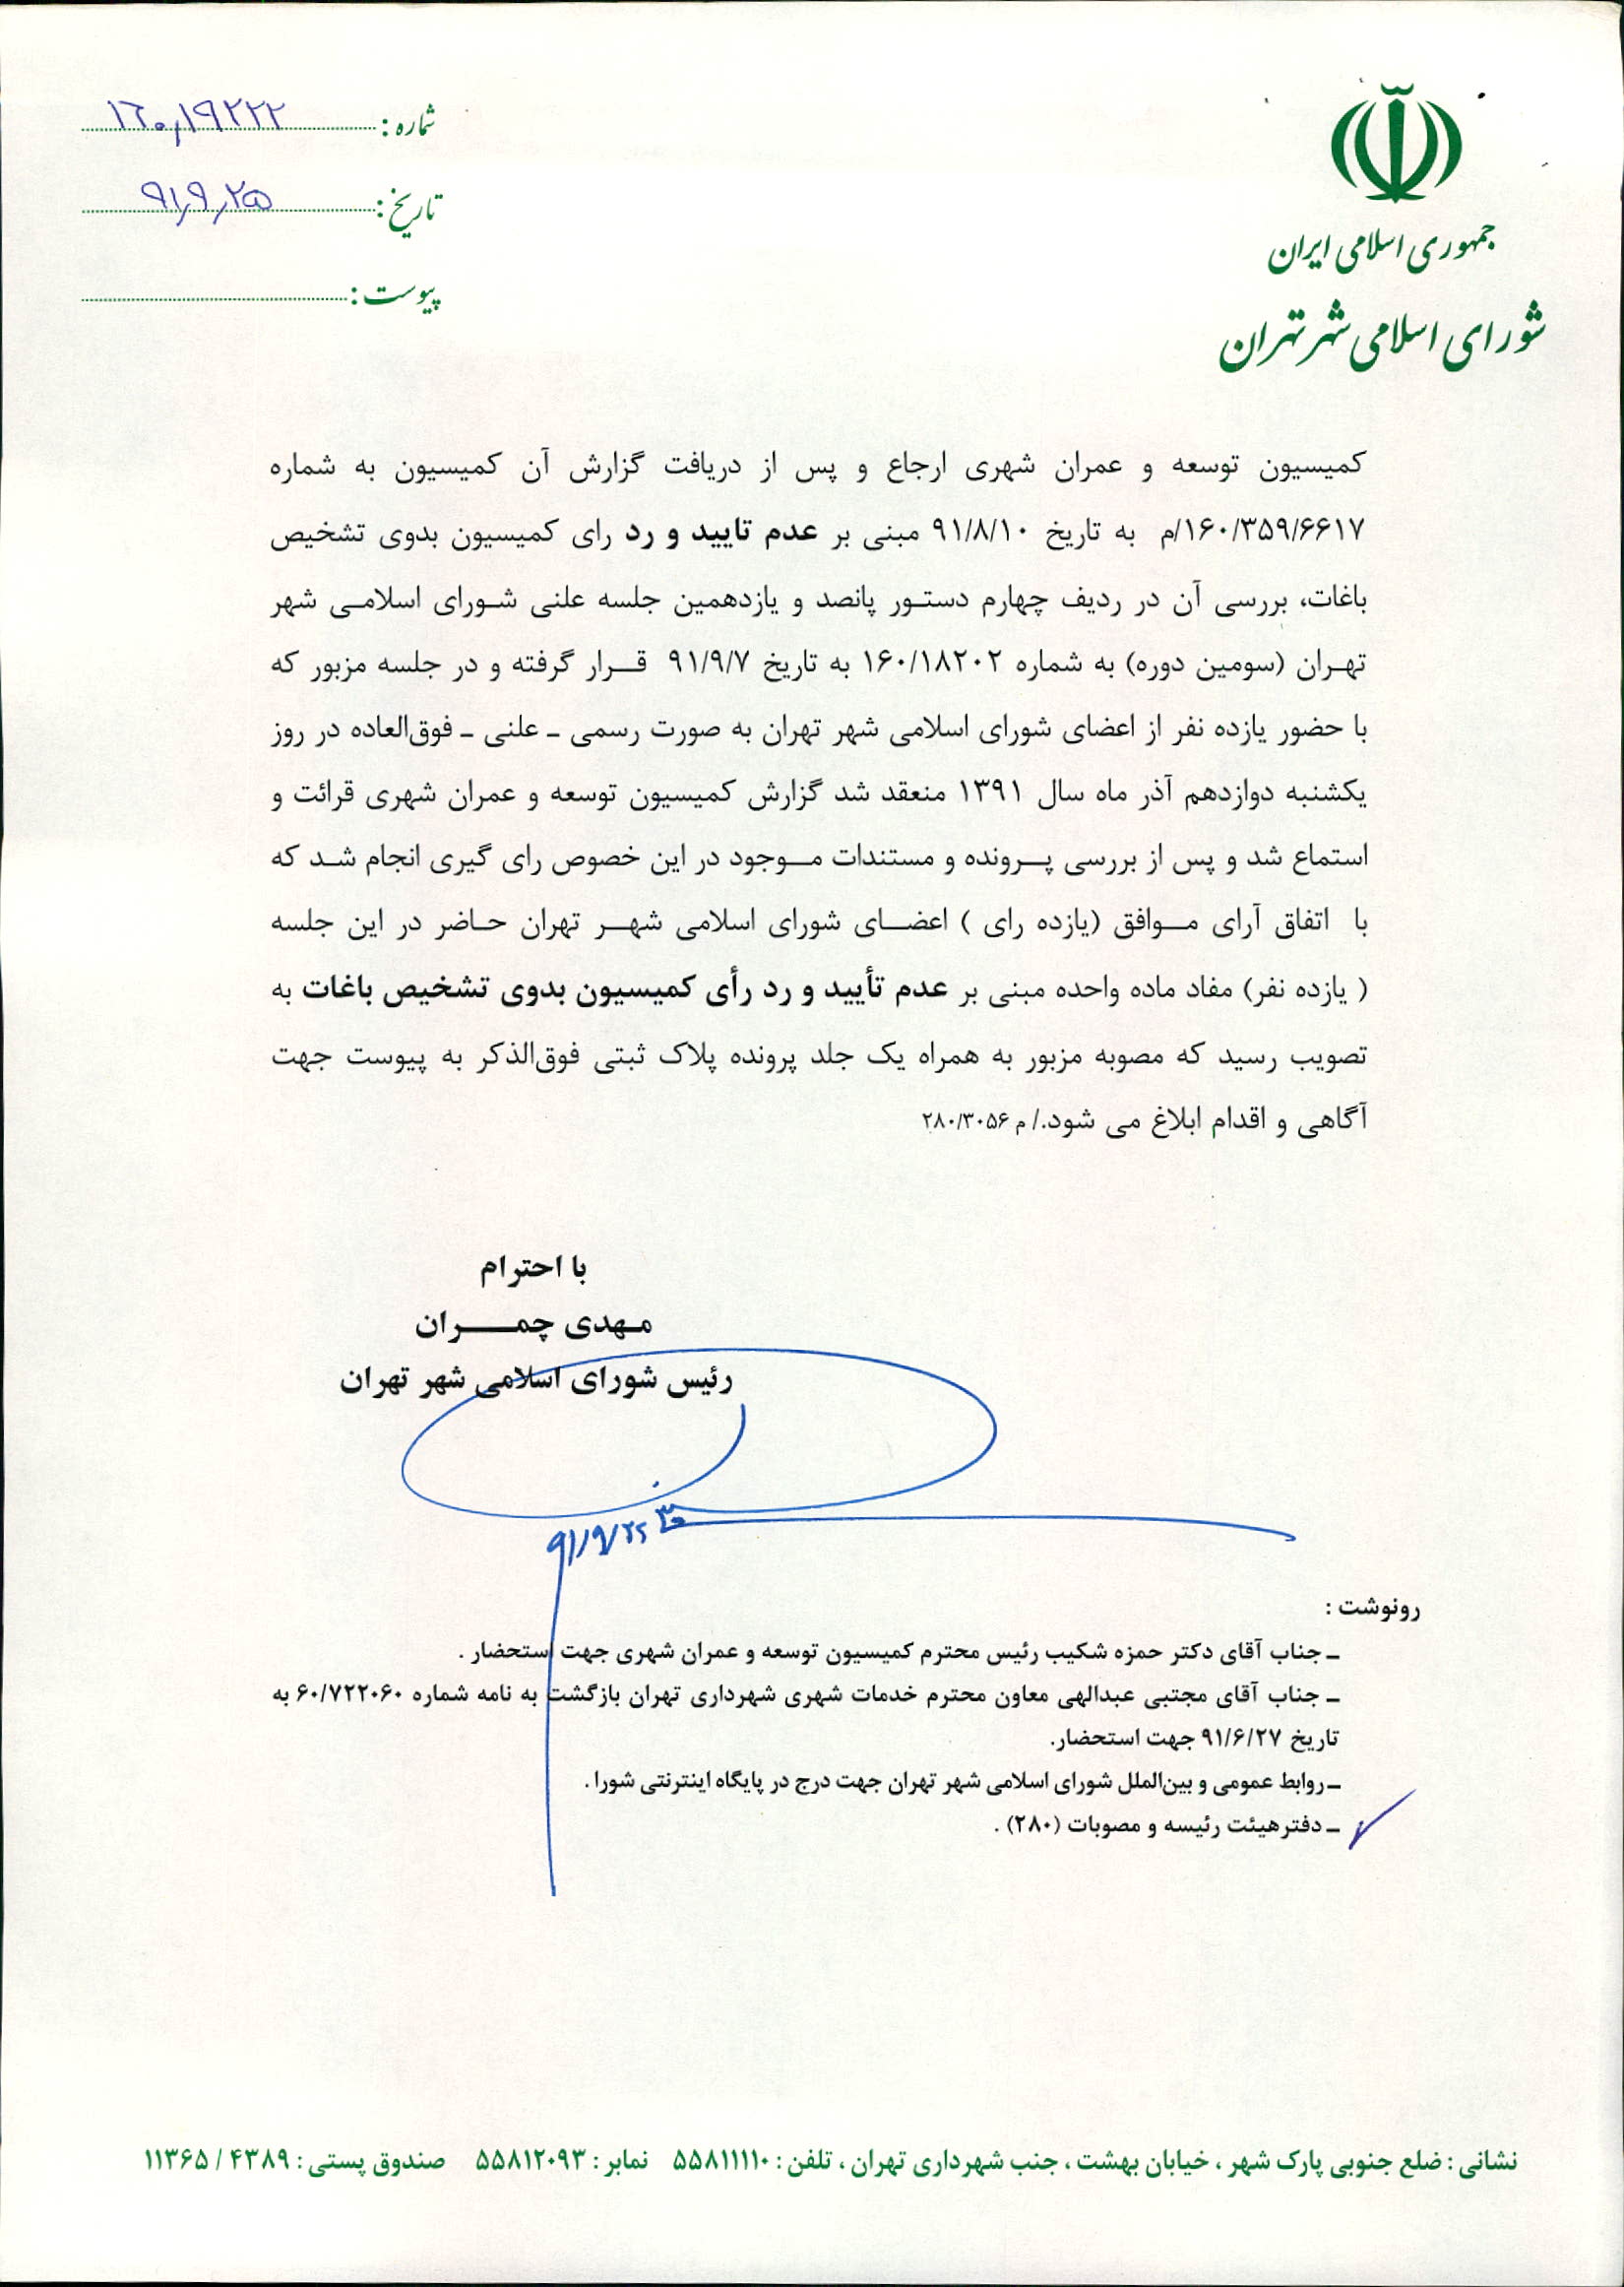 جمهوری اسلامی ایران
شورای اسلامی شهر تهران
شماره : ۱۶۰٫۱۹۲۲۲
تاریخ : ۹۱٫۹٫۲۵
پیوست :
کمیسیون توسعه و عمران شهری ارجاع و پس از دریافت گزارش آن کمیسیون به شماره
۱۶۰/۳۵۹/۶۶۱۷/م به تاریخ ۹۱/۸/۱۰ مبنی بر عدم تایید و رد رای کمیسیون بدوی تشخیص
باغات، بررسی آن در ردیف چهارم دستور پانصد و یازدهمین جلسه علنی شورای اسلامی شهر
تهران (سومین دوره) به شماره ۱۶۰/۱۸۲۰۲ به تاریخ ۹۱/۹/۷ قرار گرفته و در جلسه مزبور که
با حضور یازده نفر از اعضای شورای اسلامی شهر تهران به صورت رسمی ـ علنی ـ فوق‌العاده در روز
یکشنبه دوازدهم آذر ماه سال ۱۳۹۱ منعقد شد گزارش کمیسیون توسعه و عمران شهری قرائت و
استماع شد و پس از بررسی پرونده و مستندات موجود در این خصوص رای گیری انجام شد که
با اتفاق آرای موافق (یازده رای ) اعضای شورای اسلامی شهر تهران حاضر در این جلسه
( یازده نفر) مفاد ماده واحده مبنی بر عدم تأیید و رد رأی کمیسیون بدوی تشخیص باغات به
تصویب رسید که مصوبه مزبور به همراه یک جلد پرونده پلاک ثبتی فوق‌الذکر به پیوست جهت
آگاهی و اقدام ابلاغ می شود./ م ۲۸۰/۳۰۵۶
با احترام
مهدی چمران
رئیس شورای اسلامی شهر تهران
۹۱/۹/۲۵
رونوشت :
ـ جناب آقای دکتر حمزه شکیب رئیس محترم کمیسیون توسعه و عمران شهری جهت استحضار .
ـ جناب آقای مجتبی عبدالهی معاون محترم خدمات شهری شهرداری تهران بازگشت به نامه شماره ۶۰/۷۲۲۰۶۰ به
تاریخ ۹۱/۶/۲۷ جهت استحضار.
ـ روابط عمومی و بین‌الملل شورای اسلامی شهر تهران جهت درج در پایگاه اینترنتی شورا .
ـ دفترهیئت رئیسه و مصوبات (۲۸۰) .
نشانی : ضلع جنوبی پارک شهر ، خیابان بهشت ، جنب شهرداری تهران ، تلفن : ۵۵۸۱۱۱۱۰ نمابر : ۵۵۸۱۲۰۹۳ صندوق پستی : ۴۳۸۹ / ۱۱۳۶۵